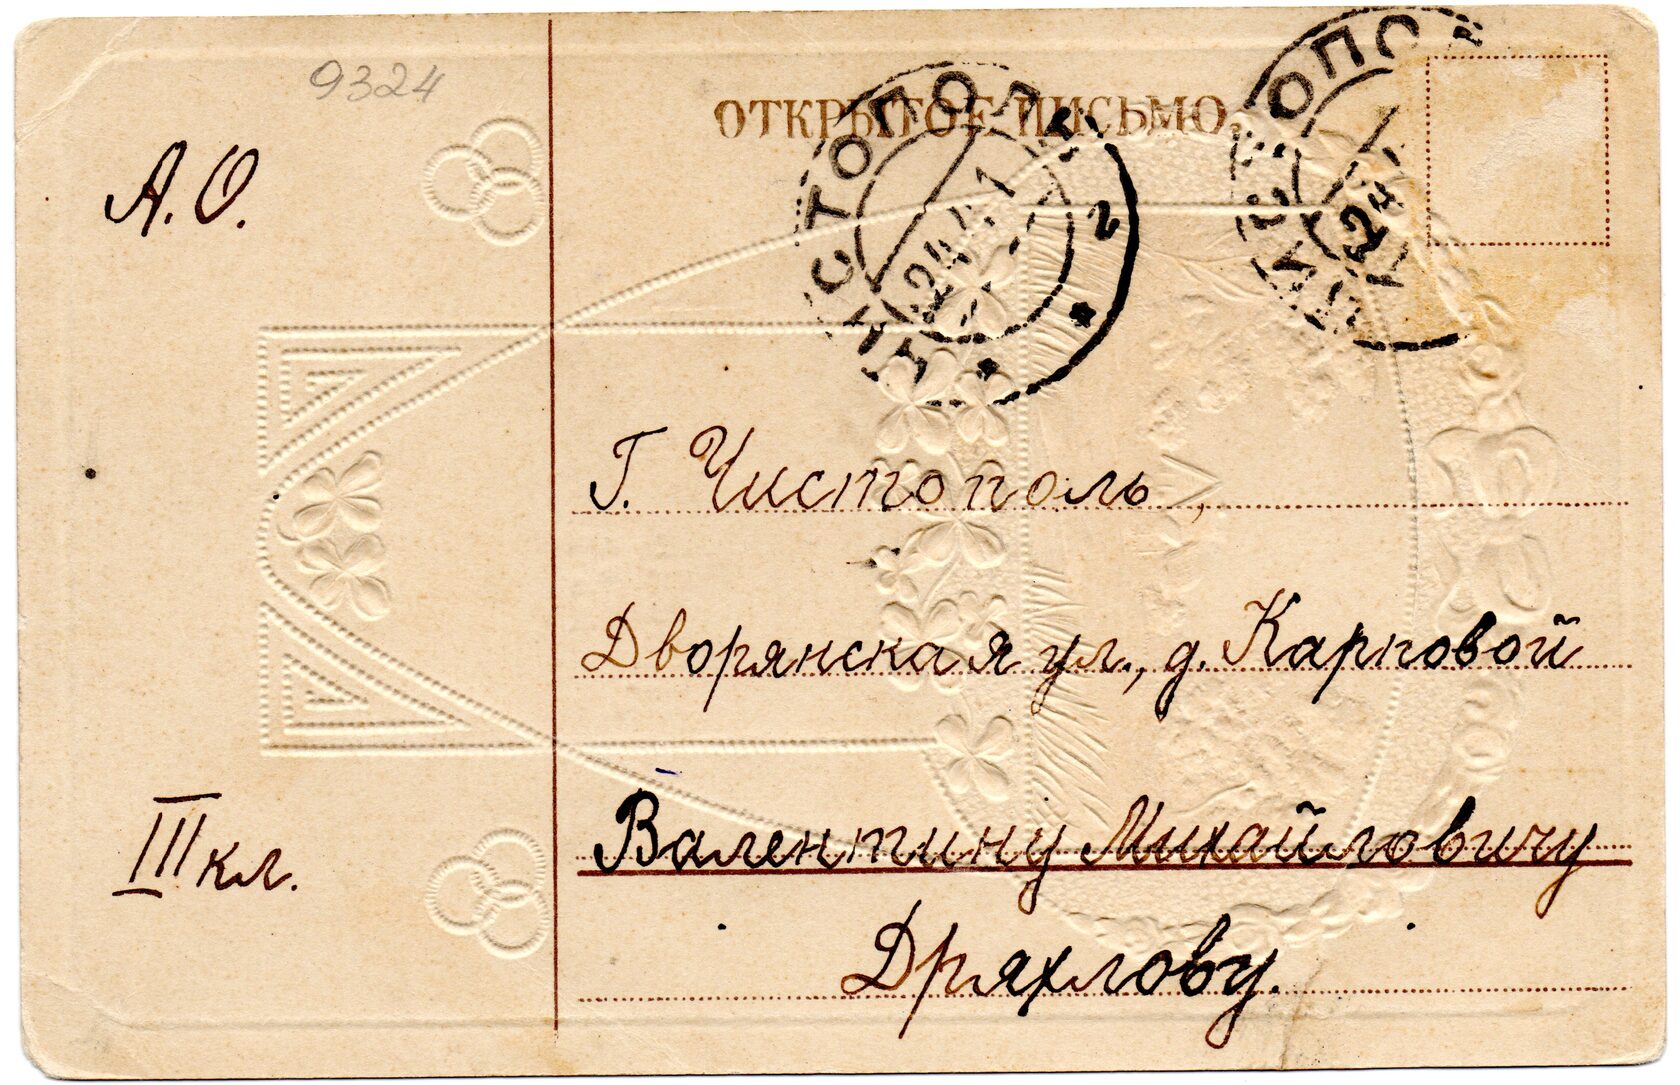 9324
ОТКРЫТОЕ ПИСЬМО
ЧИСТОПОЛЬ
24
2
24
А. О.
Г. Чистополь,
Дворянская ул., д. Карповой
Валентину Михайловичу
Дряхлову.
III кл.